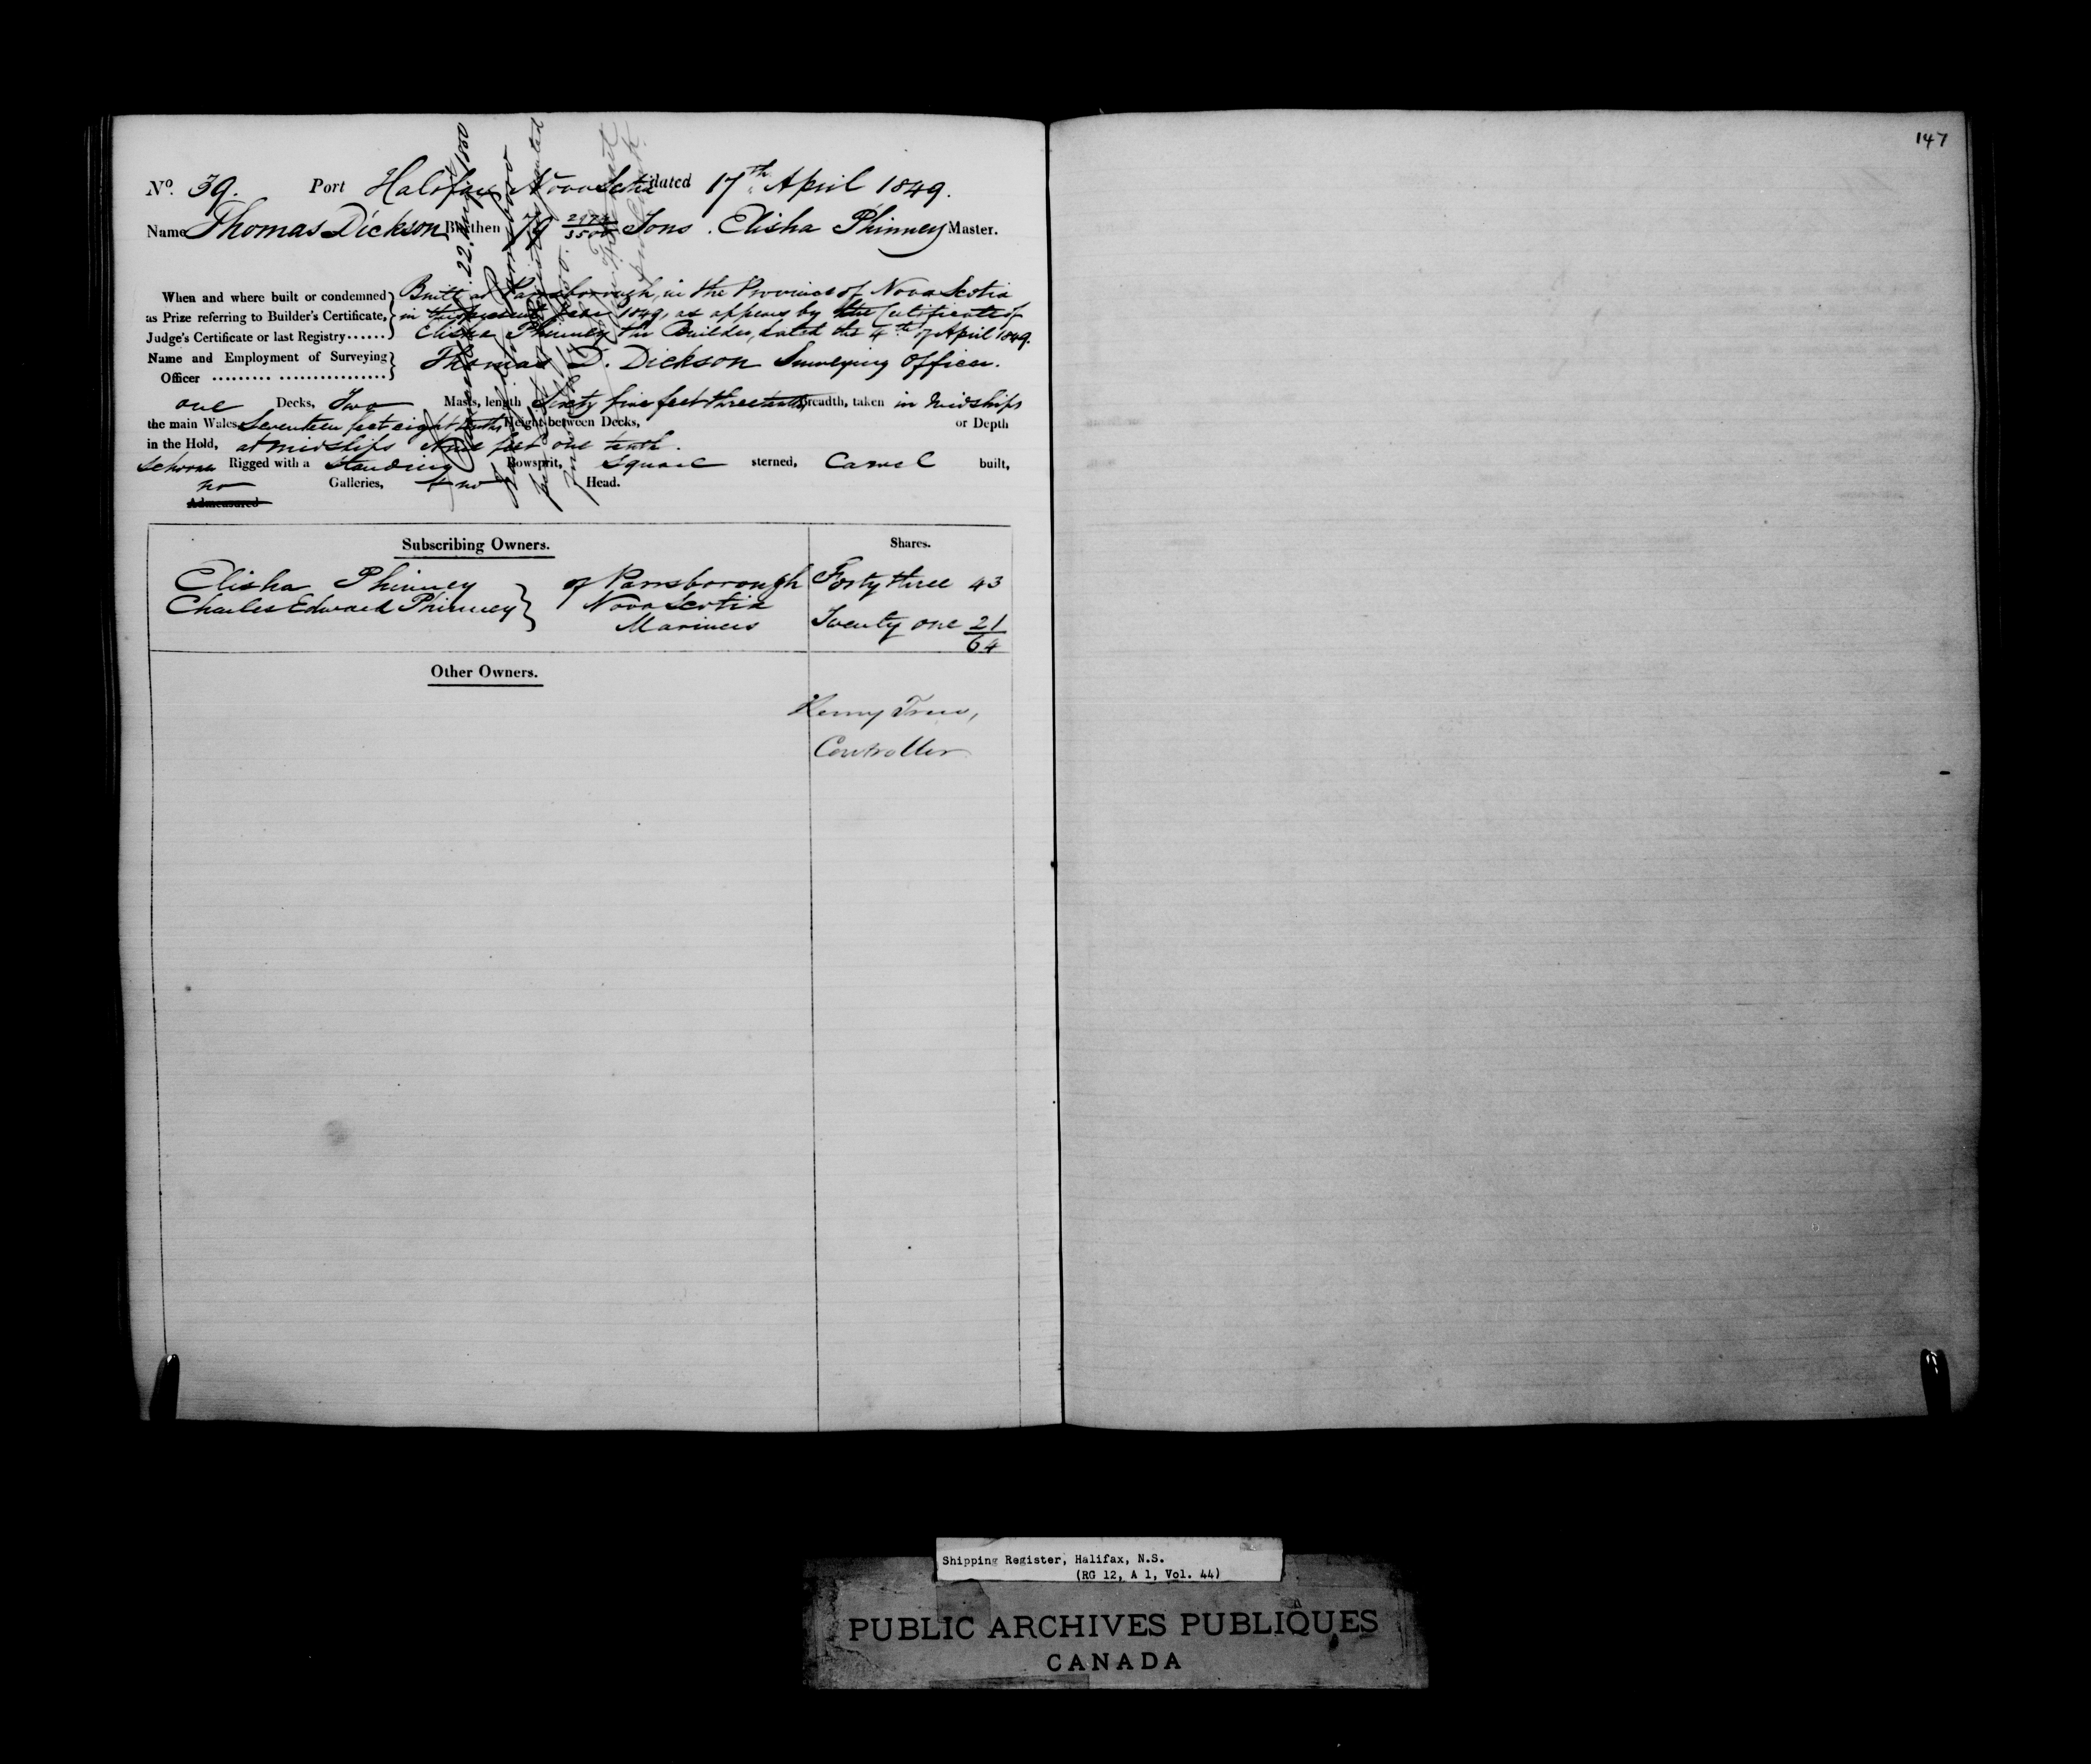 147
No. 39. Port Halifax Nova Scotia dated 17th April 1849.
Name Thomas Dickson Burthen 79 Tons. Elisha Phinney Master.
When and where built or condemned as Prize referring to Builder's Certificate, Judge's Certificate or last Registry......
Built at Parrsborough, in the Province of Nova Scotia
in the present year 1849, as appears by the Certificate of
Elisha Phinney the Builder, dated the 4th of April 1849.
Name and Employment of Surveying Officer ......... ................
Thomas D. Dickson Surveying Officer.
one Decks, Two Masts, length Sixty five feet three tenths Breadth, taken in Midships
the main Wales Seventeen feet eight tenths Height between Decks, or Depth
in the Hold, at midships feet one tenth.
Schooner Rigged with a Standing Bowsprit, Square sterned, Carvel built,
no Galleries, & no Head.
Admeasured
22
Subscribing Owners. Shares.
Elisha Phinney } of Parrsborough Forty three 43
Charles Edward Phinney } Nova Scotia
Mariners Twenty one 21
64
Other Owners.
Henry Trew,
Controller
Shipping Register, Halifax, N.S.
(RG 12, A 1, Vol. 44)
PUBLIC ARCHIVES PUBLIQUES
CANADA